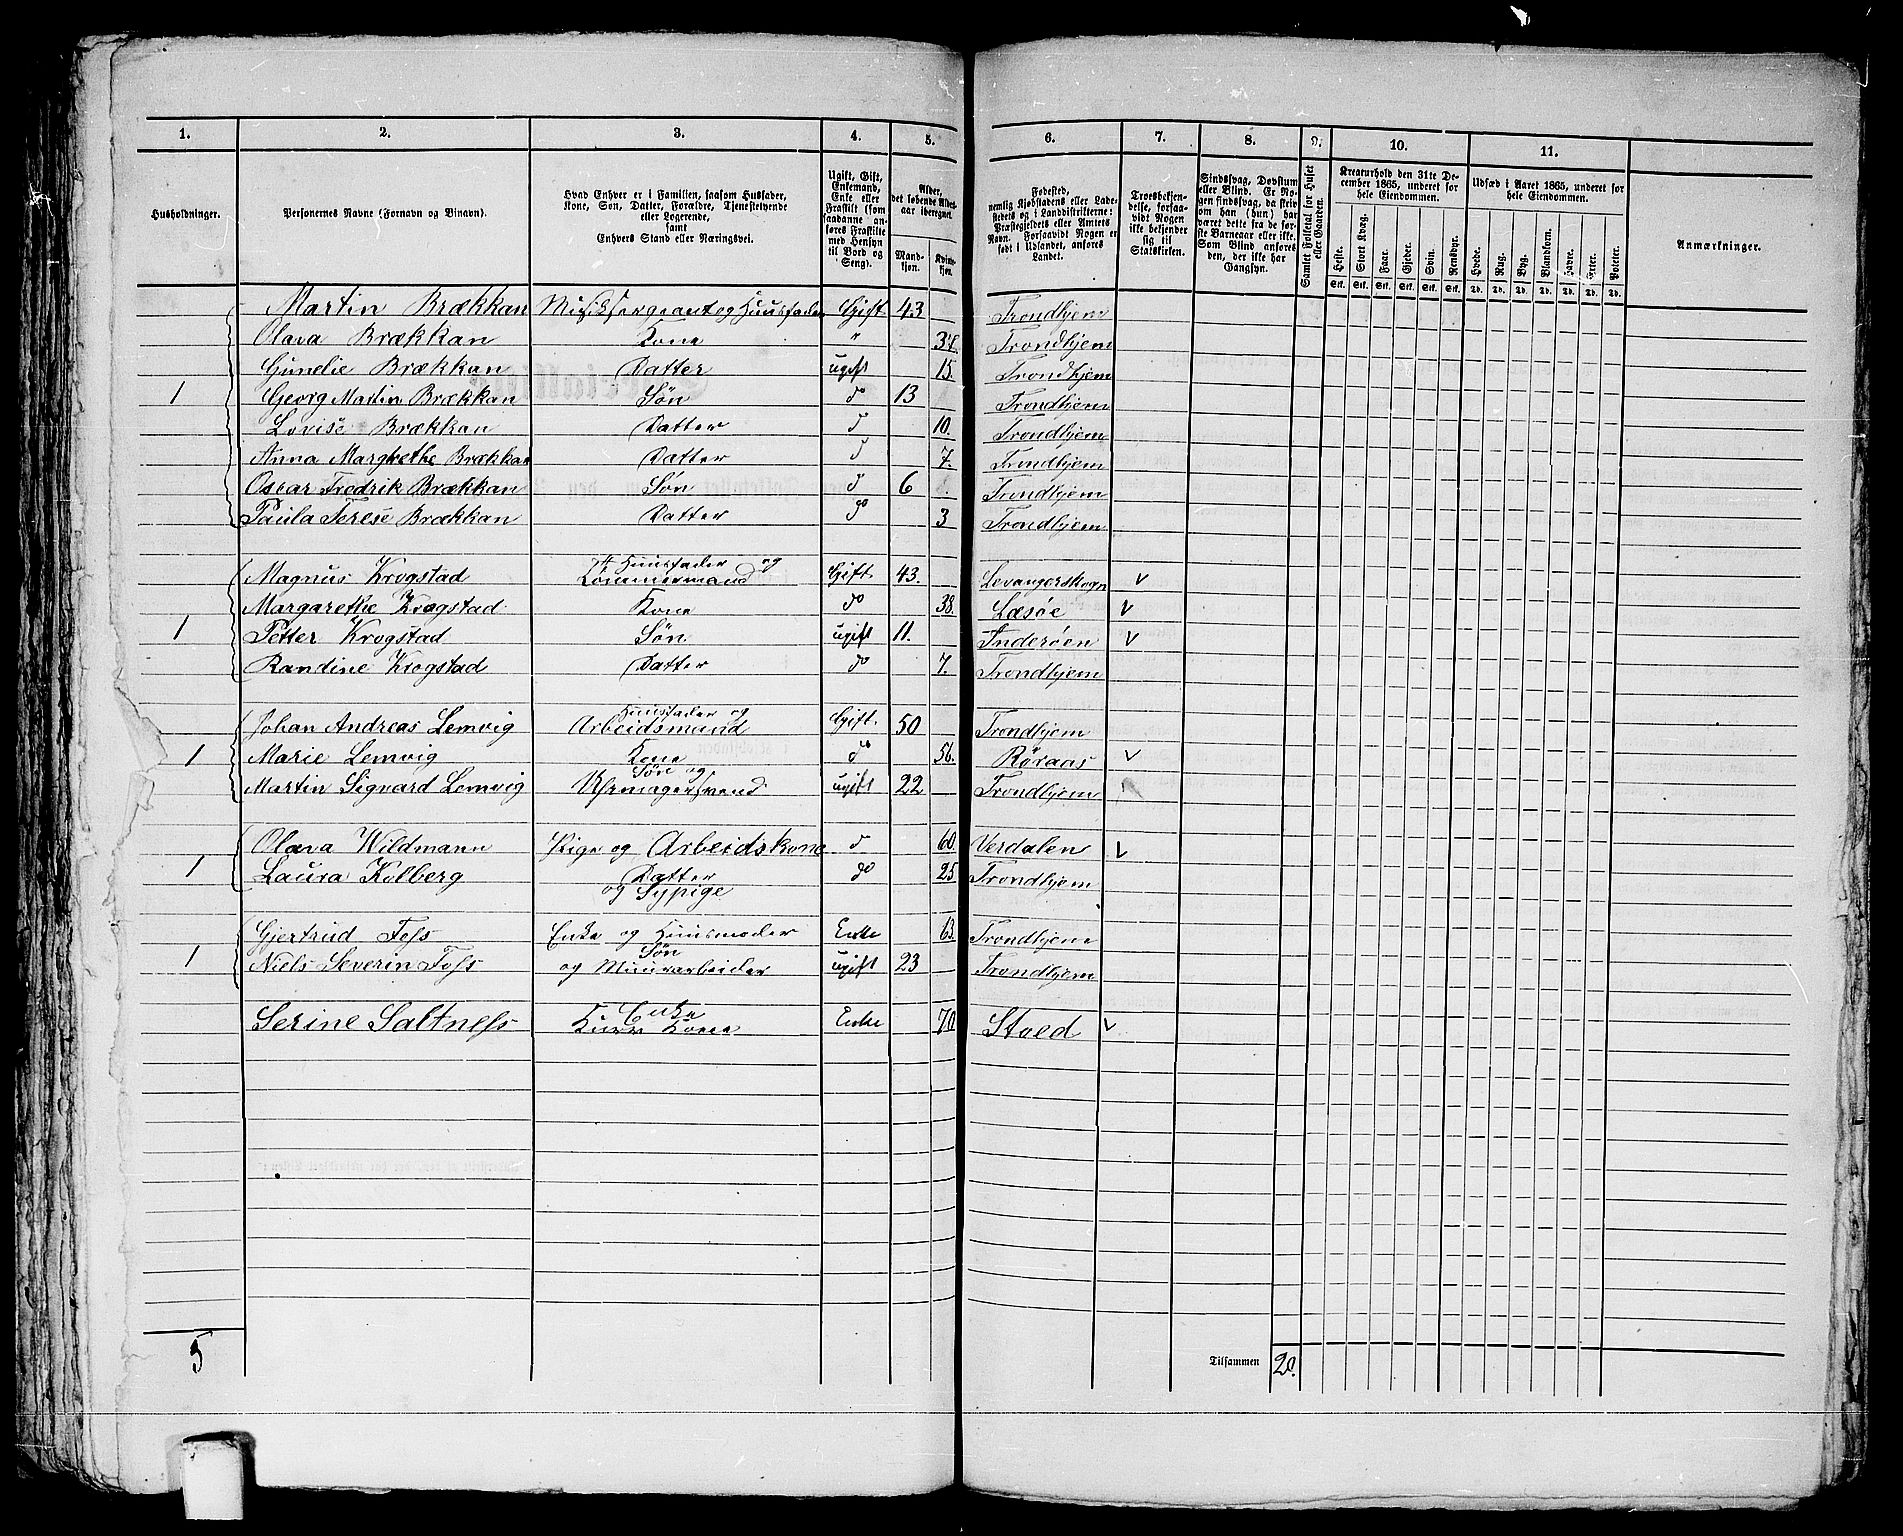 1. 2. 3. 4. 5. 6. 7. 8. 9. 10. 11.
Husholdninger.
Personernes Navne (Fornavn og Tilnavn).
Hvad Enhver er i Familien, saasom Husfader,
Kone, Søn, Datter, Forældre, Tjenestetyende
eller Logerende,
samt
Enhvers Stand eller Næringsvei.
Ugift, Gift,
Enkemand,
Enke eller
Fraskilt (som
saadanne an-
føres Fraskilte
med Hensyn
til Bord og
Seng).
Alder,
det løbende Alders-
aar iberegnet.
Mand-
kjøn.
Kvin-
kjøn.
Fødested,
nemlig Kjøbstadens eller Lade-
stedets og i Landdistrikterne:
Præstegjeldets eller Amtets
Navn. Forsaavidt Nogen er
født i Udlandet, anføres
Landet.
Troesbekjen-
delse, forsaa-
vidt Nogen
ikke bekjender
sig til
Statskirken.
Sindssvag, Døvstum
eller Blind. Er No-
gen sindssvag, da skriv
om han (hun) har
været dette fra de før-
ste Barneaar eller ikke.
Som Blind anføres
den, der ikke har
Gangsyn.
Samlet Folketal for Huset
eller Gaarden.
Kreaturhold den 31te De-
cember 1865, underet for
hele Eiendommen.
Heste. Stort Kvæg. Faar. Gjeder. Svin. Rensdyr.
Stk. Stk. Stk. Stk. Stk. Stk.
Udsæd i Aaret 1865, underet for
hele Eiendommen.
Hvede. Rug. Byg. Blandkorn. Havre. Erter. Poteter.
Td. Td. Td. Td. Td. Td. Td.
Anmærkninger.
Martin Brækkan Musiksergeant og Huusfader Gift 43 Trondhjem
Olava Brækkan Kone " Trondhjem
Gunelie Brækkan Datter ugift 15. Trondhjem
1 Georg Martin Brækkan Søn do 13 Trondhjem
Lovise Brækkan Datter d 10. Trondhjem
Anna Margrethe Brækkan Datter d 7. Trondhjem
Oscar Fredrik Brækkan Søn d 6 Trondhjem
Paula Terese Brækkan Datter do 3 Trondhjem
Huusfader og
Magnus Krogstad Tømmermand Gift 43. Levangerskogn v
Margarethe Krogstad Kone do 38. Læsøe v
1 Petter Krogstad Søn ugift 11. Inderøen v
Randine Krogstad Datter do 7. Trondhjem
Huusfader og
Johan Andreas Lemvig Arbeidsmand Gift. 50 Trondhjem
1 Marie Lemvig Kone do 56. Røraas v
Søn og
Martin Sigvard Lemvig Uhrmagersvend ugift 22 Trondhjem
Olava Wildmann Pige og Arbeidskone d 60. Verdalen v
1 Laura Kolberg Datter do 25 Trondhjem
og Sypige
Gjertrud Foss Enke og Huusmoder Enke 63. Trondhjem
Søn
1 Niels Severin Foss og Muurarbeider ugift 23 Trondhjem
Enke
Serine Saltness Kone Enke 70 Stoed v
5
Tilsammen 20.